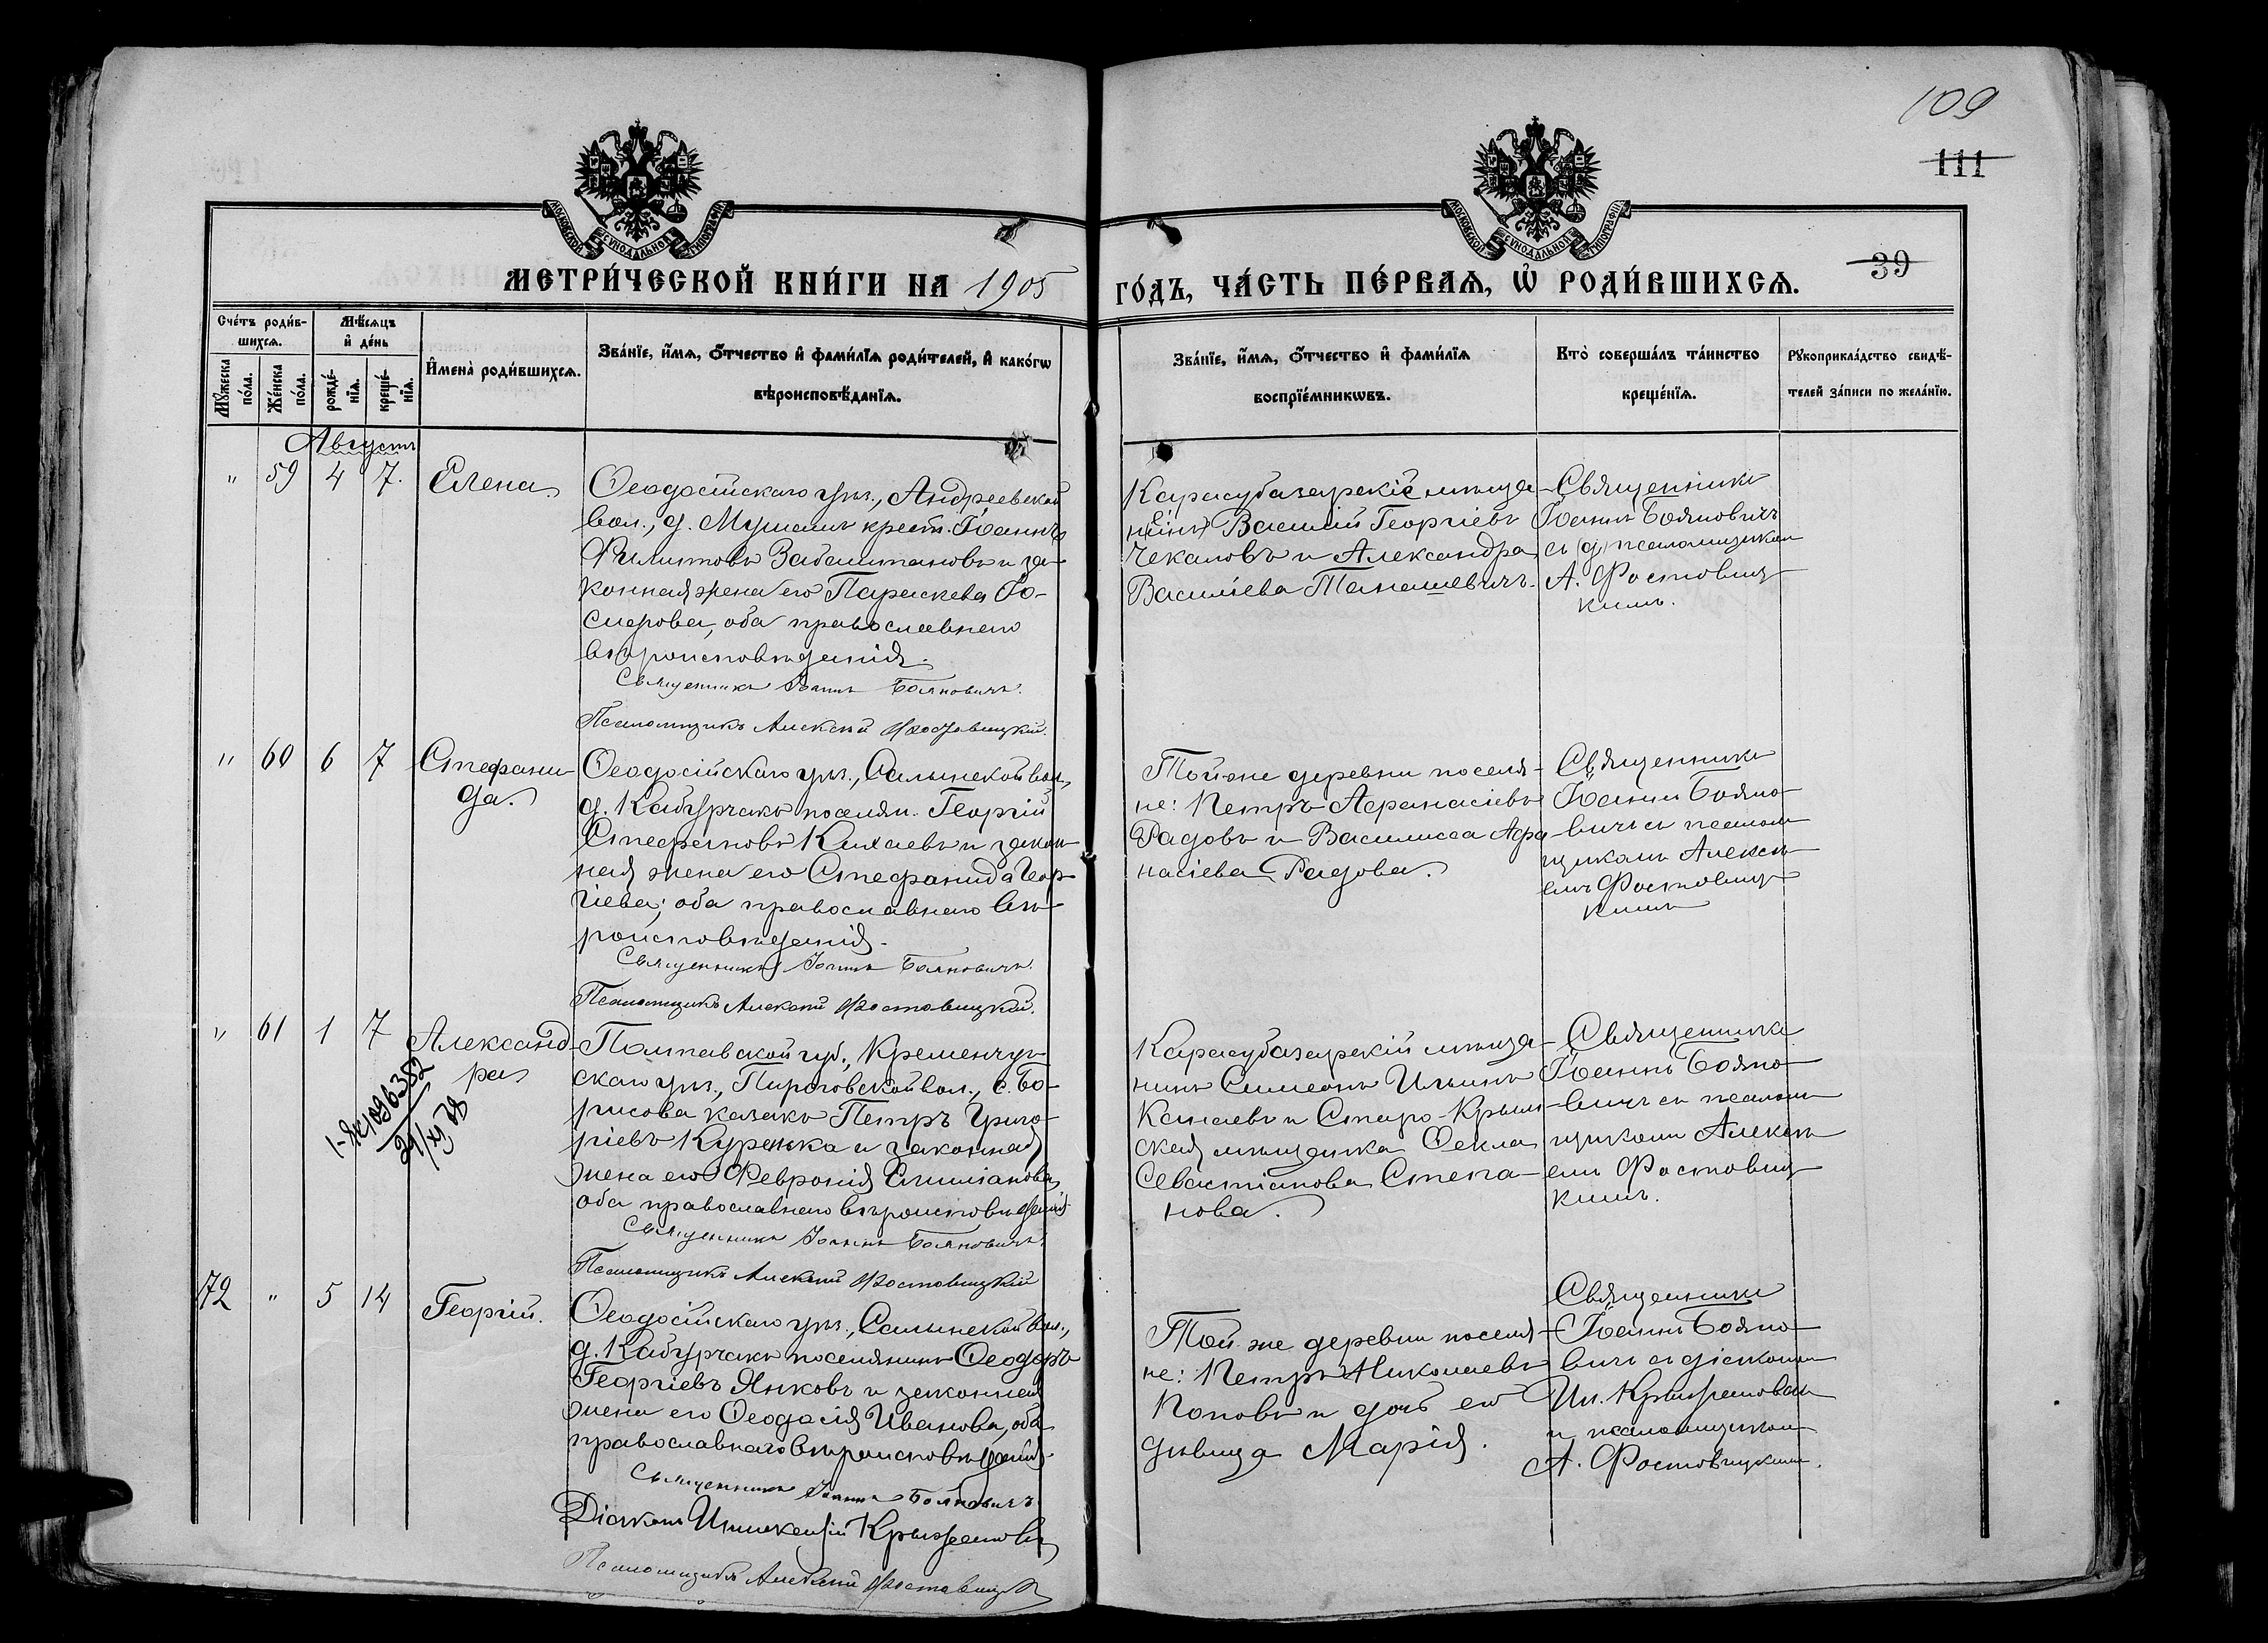 109
111
39
МОСКОВСКОЙ СУНОДАЛЬНОЙ ТИПОГРАФІИ
МОСКОВСКОЙ СУНОДАЛЬНОЙ ТИПОГРАФІИ
МЕТРИ́ЧЕСКОЙ КНИ́ГИ НА 1905
ГО́ДЪ, ЧА́СТЬ ПЕ́РВАѦ, Ѡ҆ РОДИ́ВШИХСѦ.
Сче́тъ роди́в-
шихсѧ.
Мѣ́сѧцъ
и҆ де́нь
Мꙋ́жеска
по́ла.
Же́нска
по́ла.
рожде́-
нїѧ.
креще́-
нїѧ.
И҆мена̀ роди́вшихсѧ.
Зва́нїе, и҆́мѧ, ѻ҆́тчество и҆ фами́лїѧ роди́телей, и҆ како́гѡ
вѣроисповѣ́данїѧ.
Зва́нїе, и҆́мѧ, ѻ҆́тчество и҆ фами́лїѧ
воспрїе́мникѡвъ.
Кто̀ соверша́лъ та́инство
креще́нїѧ.
Рꙋкоприкла́дство свидѣ́-
телей за́писи по жела́нїю.
Августъ
" 59 4 7. Елена
Ѳеодосійскаго уѣз., Андреевской
вол., д. крест. Іоаннъ
Филиповъ и за-
конная жена его Параскева
оба православнаго
вѣроисповѣданія.
Священникъ Іоаннъ Бояновичъ.
Псаломщикъ Алексій Фостовицкій.
Карасубазарскій мѣща-
нинъ Василій Георгіевъ
Чекаловъ и Александра
Василіева
Священникъ
Іоаннъ Бояновичъ
съ псаломщикомъ
А. Фостовиц-
кимъ.
" 60 6 7 Стефани-
да.
Ѳеодосійскаго уѣз., Салынской вол.,
д. Кабурчакъ поселян. Георгій
Стефановъ и закон-
ная жена его Стефанида Геор-
гіева; оба православнаго вѣ-
роисповѣданія.
Священникъ Іоаннъ Бояновичъ.
Псаломщикъ Алексій Фостовицкій.
Той-же деревни поселя-
не: Петръ Афанасіевъ
Радовъ и Василисса Афа-
насіева Радова.
Священникъ
Іоаннъ Бояно-
вичъ съ псалом-
щикомъ Алексѣ-
емъ Фостовиц-
кимъ
" 61 1 7 Александ-
ра
Полтавской губ., Кременчуг-
скаго уѣз., Пироговской вол., с. Бо-
рисова казакъ Петръ Григо-
ріевъ Куренка и законная
жена его Февронія
оба православнаго вѣроисповѣданія
Священникъ Іоаннъ Бояновичъ.
Псаломщикъ Алексій Фостовицкій
Карасубазарскій мѣща-
нинъ Симеонъ Ильинъ
и Старо-Крым-
ская мѣщанка Ѳекла
Севастіанова Степа-
нова.
Священникъ
Іоаннъ Бояно-
вичъ съ псалом-
щикомъ Алексѣ-
емъ Фостовиц-
кимъ.
72 " 5 14 Георгій.
Ѳеодосійскаго уѣз., Салынской вол.,
д. Кабурчакъ поселянинъ Ѳеодоръ
Георгіевъ Янковъ и законная
жена его Ѳеодосія Иванова, оба
православнаго вѣроисповѣданія.
Священникъ Іоаннъ Бояновичъ
Діаконъ
Псаломщикъ Алексій
Той же деревни поселя-
не: Петръ Николаевъ
Поповъ и дочь его
дѣвица Марія.
Священникъ
Іоаннъ Бояно-
вичъ съ діакономъ
и псаломщикомъ
А. Фостовицкимъ.